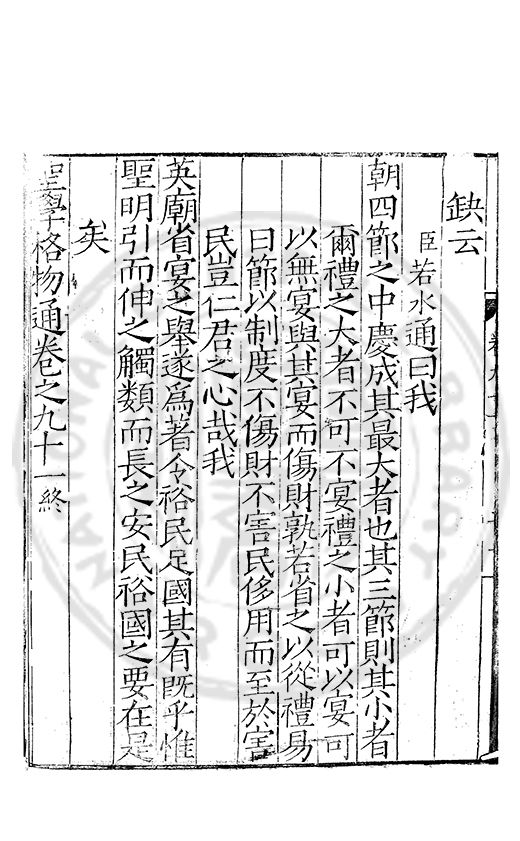 缺云
臣若水通曰我
朝四節之中慶成其最大者也其三節則其小者
爾禮之大者不可不宴禮之小者可以宴可
以無宴與其宴而傷財孰若省之以從禮易
曰節以制度不傷財不害民侈用而至於害
民豈仁君之心哉我
英廟省宴之舉遂爲著令裕民足國其有既乎惟
聖明引而伸之觸類而長之安民裕國之要在是
矣
聖學格物通卷之九十一終